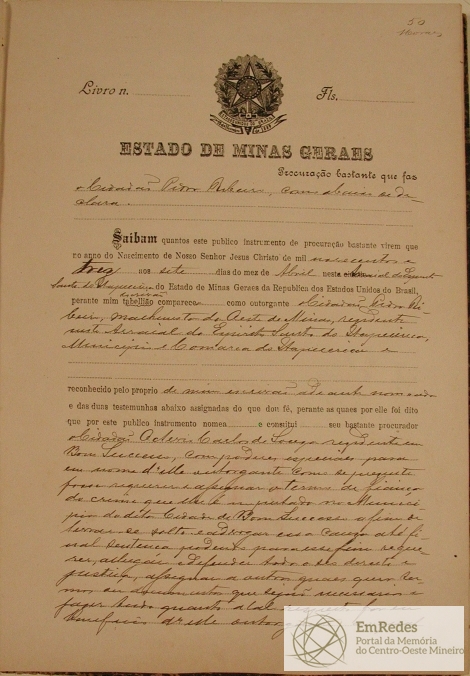 50
Livro n. Fls.
ESTADO DE MINAS GERAES
Procuração bastante que faz
o Cidadão Pedro Ribeiro, como abaixo se de-
clara.
Saibam quantos este publico instrumento de procuração bastante virem que
no anno do Nascimento de Nosso Senhor Jesus Christo de mil novecentos e
trez aos sete dias do mez de Abril neste Arraial do Espirito
Santo do Itapecerica do Estado de Minas Geraes da Republica dos Estados Unidos do Brasil,
perante mim tabellião comparece como outorgante o Cidadão Pedro Ri-
beiro, machinista da Oeste de Minas, residente
neste Arraial do Espirito Santo do Itapecerica,
Municipio e Comarca do Itapecerica e
reconhecido pelo proprio de mim escrivão adeante nomeado
e das duas testemunhas abaixo assignadas do que dou fé, perante as quaes por elle foi dito
que por este publico instrumento nomea e constitui seu bastante procurador
o Cidadão Carlos de Souza residente em
Bom Successo, com poderes especiaes para
em nome d'elle outorgante
requerer e assignar o termo de fiança
do crime que lhe é imputado no Munici-
pio da dita Cidade de Bom Successo afim de
livrar-se solto e causa até fi-
nal sentença podendo para esse fim reque-
rer, allegar e defender todo o seu direito e
justiça, assignar
mos ou documentos que sejão necessarios e
fazer tudo quanto
beneficio d'elle
EmRedes
Portal da Memória
do Centro-Oeste Mineiro